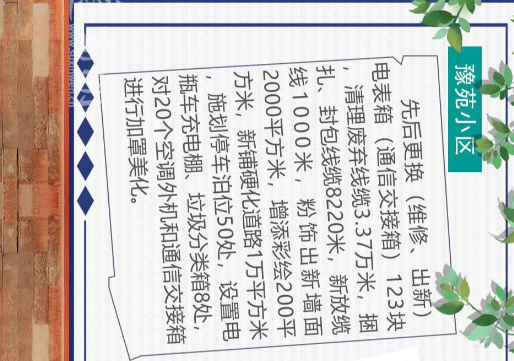 豫苑小区
先后更换（维修、出新）
电表箱（通信交接箱）123块
，清理废弃线缆3.37万米，捆
扎、封包线缆8220米，新放缆
线1000米，粉饰出新墙面
2000平方米，增添彩绘200平
方米，新铺硬化道路1万平方米
，施划停车泊位50处，设置电
瓶车充电棚、垃圾分类箱8处，
对20个空调外机和通信交接箱
进行加罩美化。